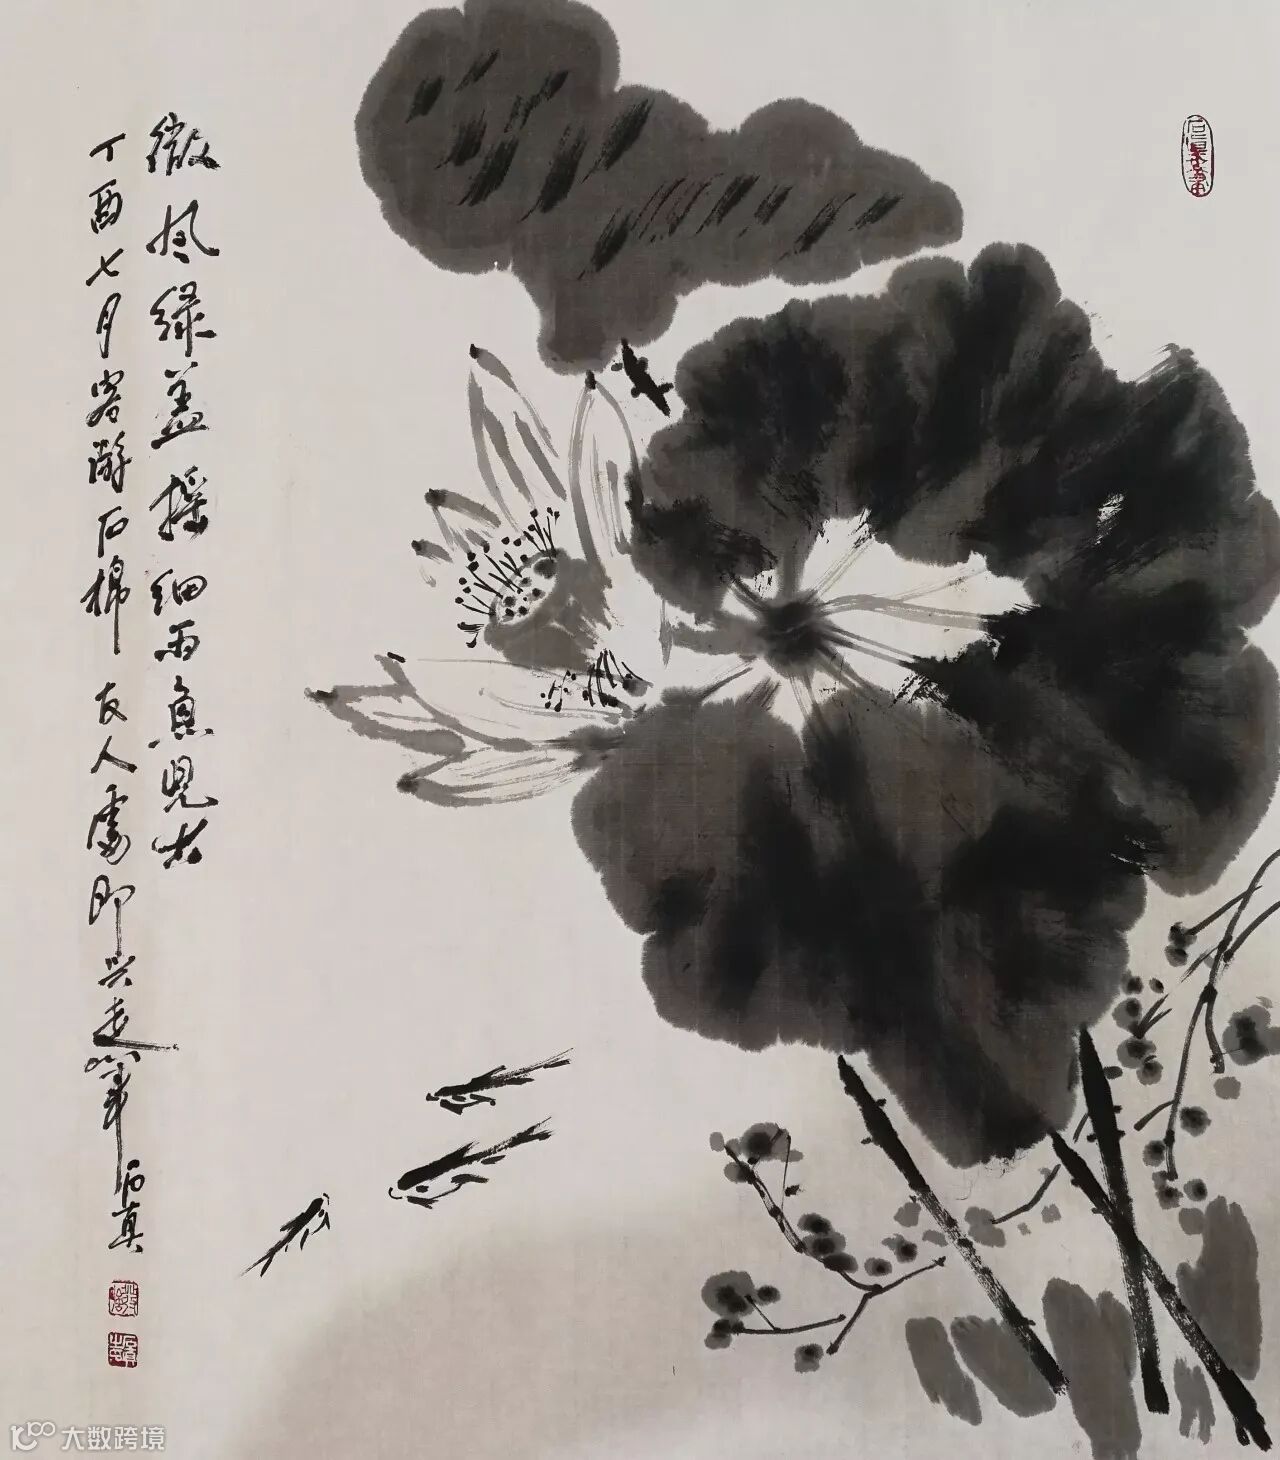 微风绿盖摇细雨鱼儿出
丁酉七月客游石棉友人处即兴走笔石真
大数跨境